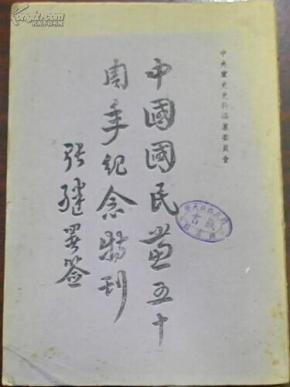 中央黨史史料編纂委員會
中國國民黨五十
周年紀念特刊
张继署签